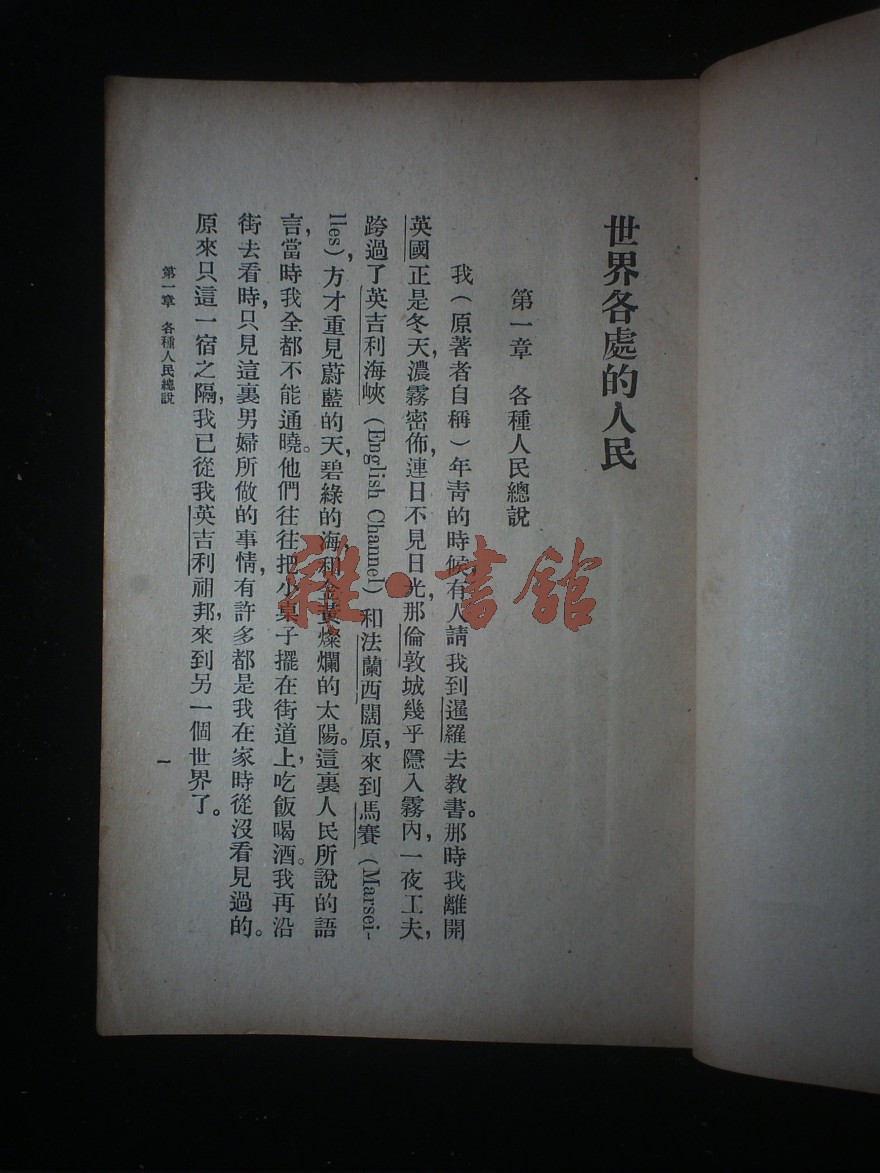 世界各處的人民
第一章 各種人民總說
我(原著者自稱)年靑的時候,有人請我到暹羅去教書。那時我離開
英國正是冬天,濃霧密佈,連日不見日光,那倫敦城幾乎隱入霧內,一夜工夫,
跨過了英吉利海峽(English Channel)和法蘭西闊原,來到馬賽(Marsei-
lles),方才重見蔚藍的天,碧綠的海,和金黃燦爛的太陽。這裏人民所說的語
言,當時我全都不能通曉。他們往往把小桌子擺在街道上,吃飯喝酒。我再沿
街去看時,只見這裏男婦所做的事情,有許多都是我在家時從沒看見過的。
原來只這一宿之隔,我已從我英吉利祖邦,來到另一個世界了。
第一章 各種人民總說
一
雜·書館